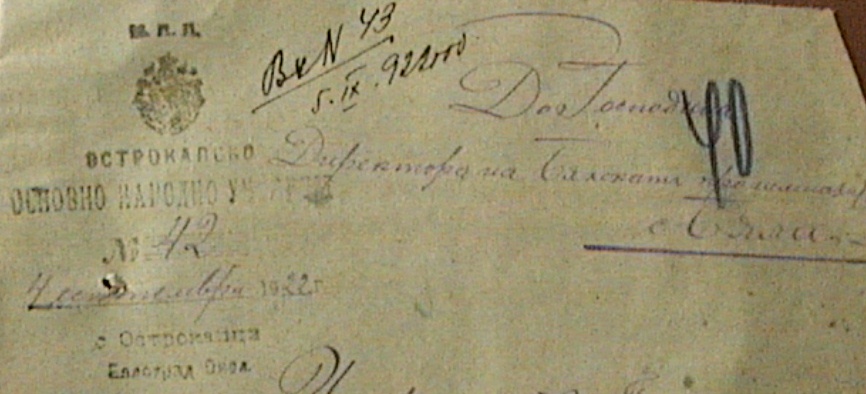 М. Н. П.
ОСТРОКАПСКО
ОСНОВНО НАРОДНО
№ 42
4 септемврий 1922 г.
с. Острокапци
Белоград. Окол.
Вх N 43
5. IX. 922 год
До Господина
Директора на Бялската прогимназия
с. Бяла
40